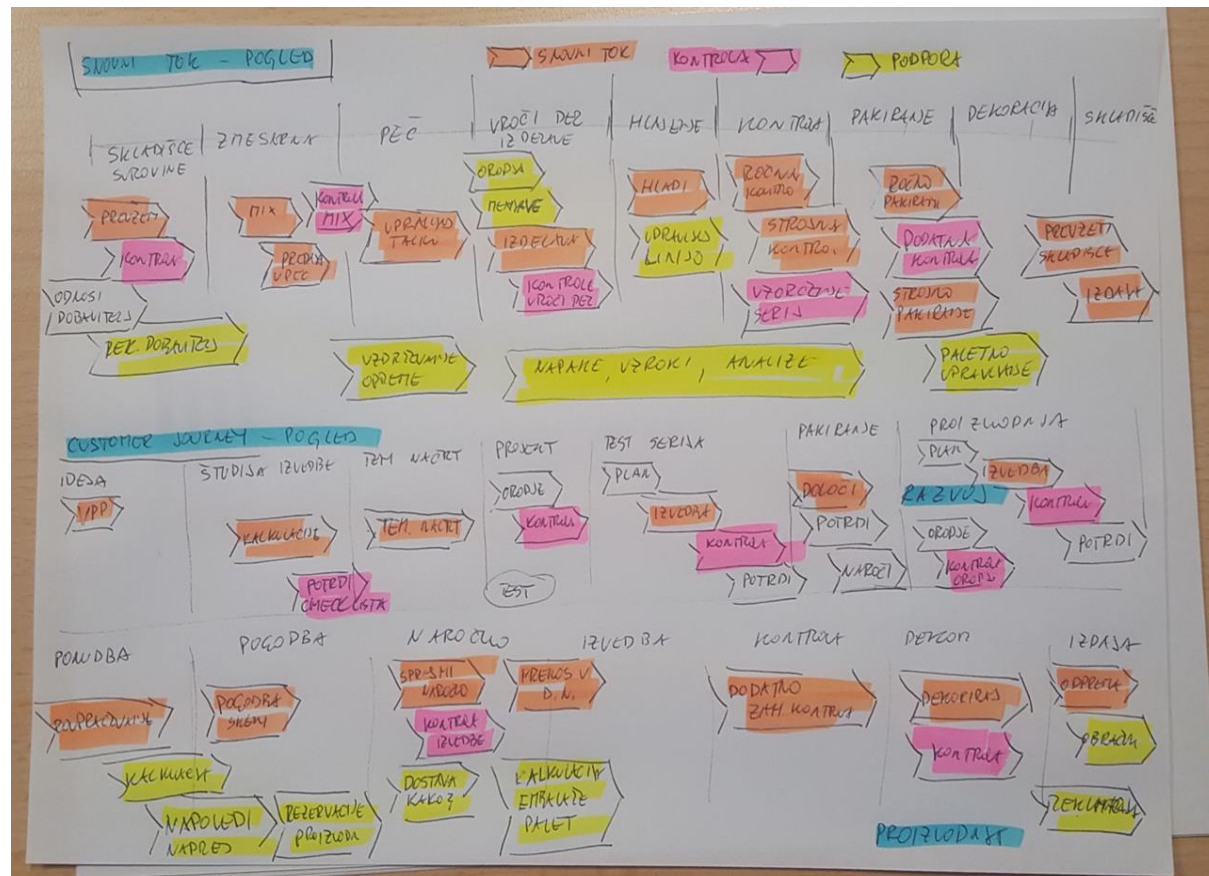 SNOVNI TOK - POGLED
SNOVNI TOK
KONTROLA
PODPORA
SKLADIŠČE
SUROVINE
ZMESARNA
PEČ
VROČI DEL
IZDELAVE
HLAJENJE
KONTROLA
PAKIRANJE
DEKORACIJA
SKLADIŠČ
PREVZEM
KONTROLA
ODNOSI
DOBAVITELJ
REK. DOBAVITELJ
MIX
KONTROLA
MIX
PREDAJA
V PEČ
UPRAVLJAJ
TALINO
VZDRŽEVANJE
OPREME
ORODJA
MENJAVE
IZDELAVA
KONTROLE
VROČI DEL
HLADI
UPRAVLJAJ
LINIJO
ROČNA
KONTRO.
STROJNA
KONTRO.
VZORČENJE
SERIJ
ROČNO
PAKIRANJE
DODATNA
KONTROLA
STROJNO
PAKIRANJE
PALETNO
UPRAVLJANJE
PREVZEM
SKLADIŠČE
IZDAJA
NAPAKE, VZROKI, ANALIZE
CUSTOMER JOURNEY - POGLED
IDEJA
VPP
ŠTUDIJA IZVEDBE
KALKULACIJE
POTRDI
CHECKLISTA
TEH NAČRT
TEH. NAČRT
PROJEKT
ORODJE
KONTROLA
TEST
TEST SERIJA
PLAN
IZVEDBA
KONTROLA
POTRDI
PAKIRANJE
DOLOČI
POTRDI
NAROČI
PROIZVODNJA
PLAN
IZVEDBA
RAZVOJ
KONTROLA
ORODJE
POTRDI
KONTROLA
ORODJ
PONUDBA
POGODBA
NAROČILO
IZVEDBA
KONTROLA
DEKOR
IZDAJA
POVPRAŠEVANJE
KALKULACIJA
NAPOVEDI
NAPREJ
POGODBA
SKLENI
REZERVACIJE
PROIZVODA
SPREJMI
NAROČILO
KONTROLA
IZVEDBE
DOSTAVA
PRENOS V
D.N.
KALKULACIJA
EMBALAŽE
PALET
DODATNO
ZAH. KONTROLA
DEKORIRAJ
KONTROLA
PROIZVODNJA
ODPREMA
OBRAČUN
REKLAMACIJA